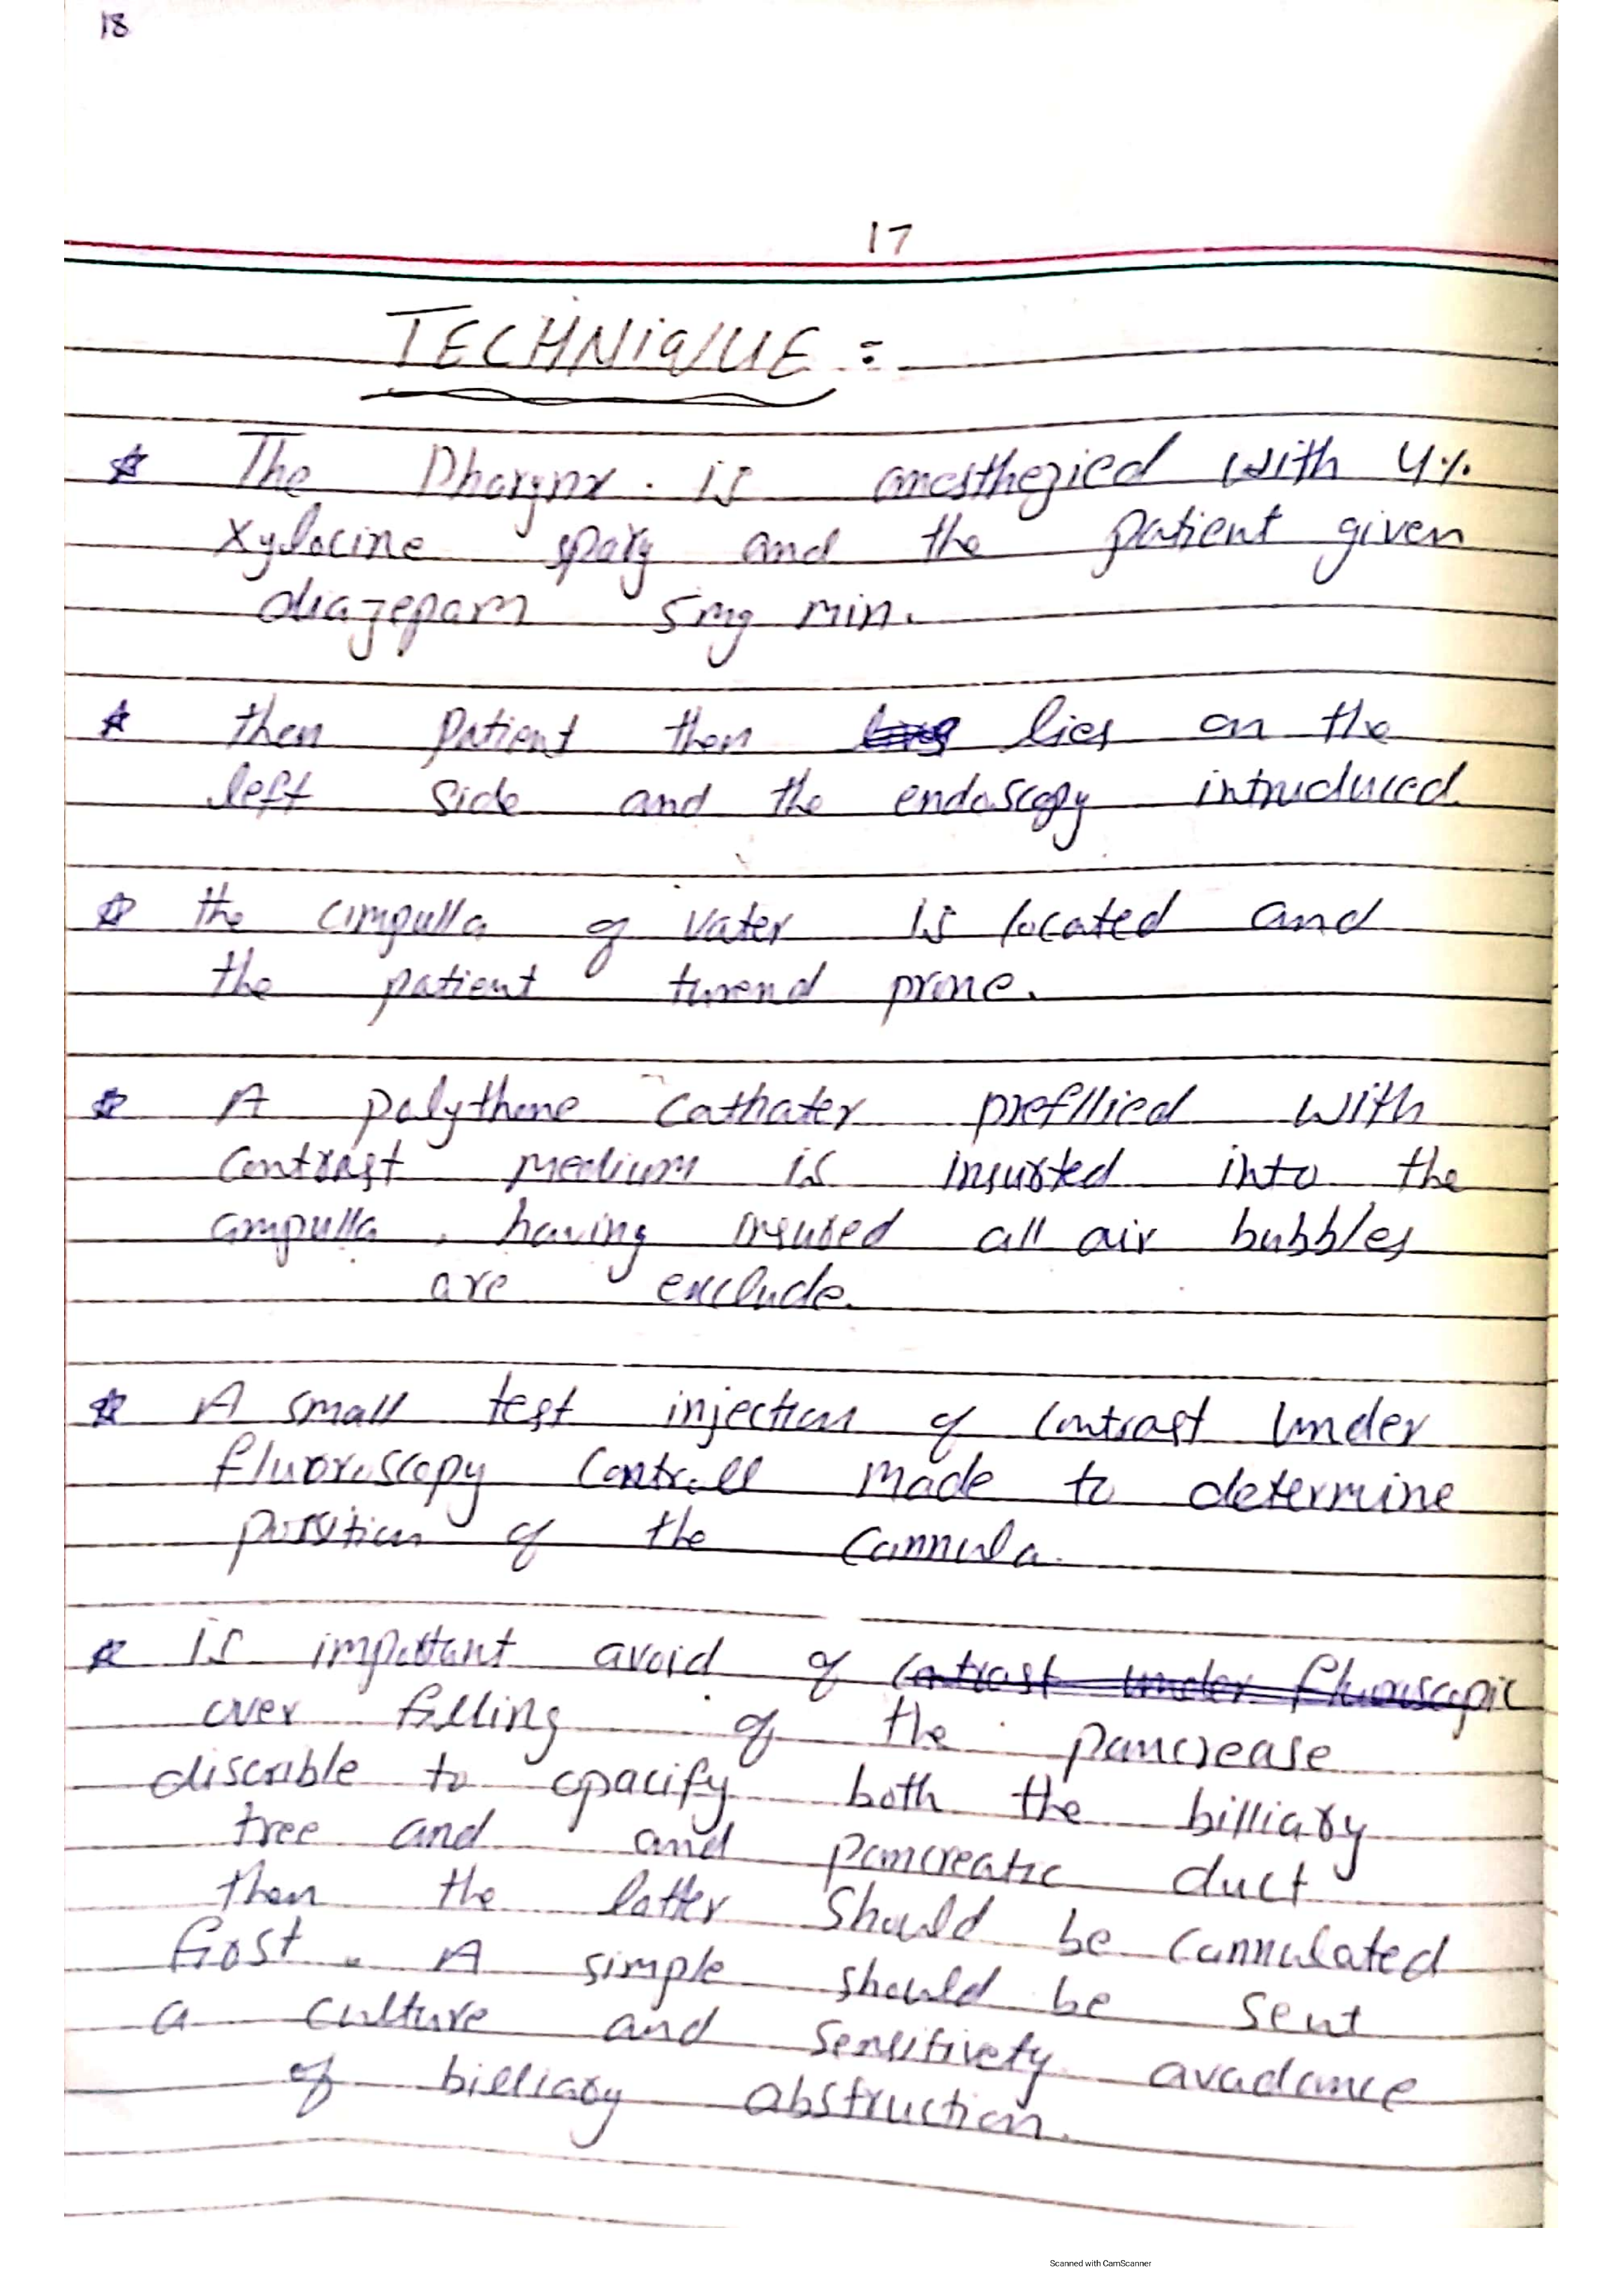 18
17
TECHNiQUE :
☆ The Pharynx . is anesthezied with 4%
xylocine spary and the patient given
diazepam 5mg min.
☆ then patient then lies on the
left side and the endoscopy intruduced.
☆ the ampulla of vater is located and
the patient turend prone.
☆ A polythene cathater prefllied with
contrast medium is insurted into the
ampulla , having insured all air bubbles
are exclude.
☆ A small test injection of contrast under
fluoroscopy controll made to determine
possition of the cannula.
☆ is important avoid of contrast under fluoroscopic
over filling of the pancrease
discrible to opacify both the billiary
tree and and pancreatic duct
then the latter should be cannulated
first . A simple should be sent
a culture and sensitivety avadance
of billiary abstruction.
Scanned with CamScanner